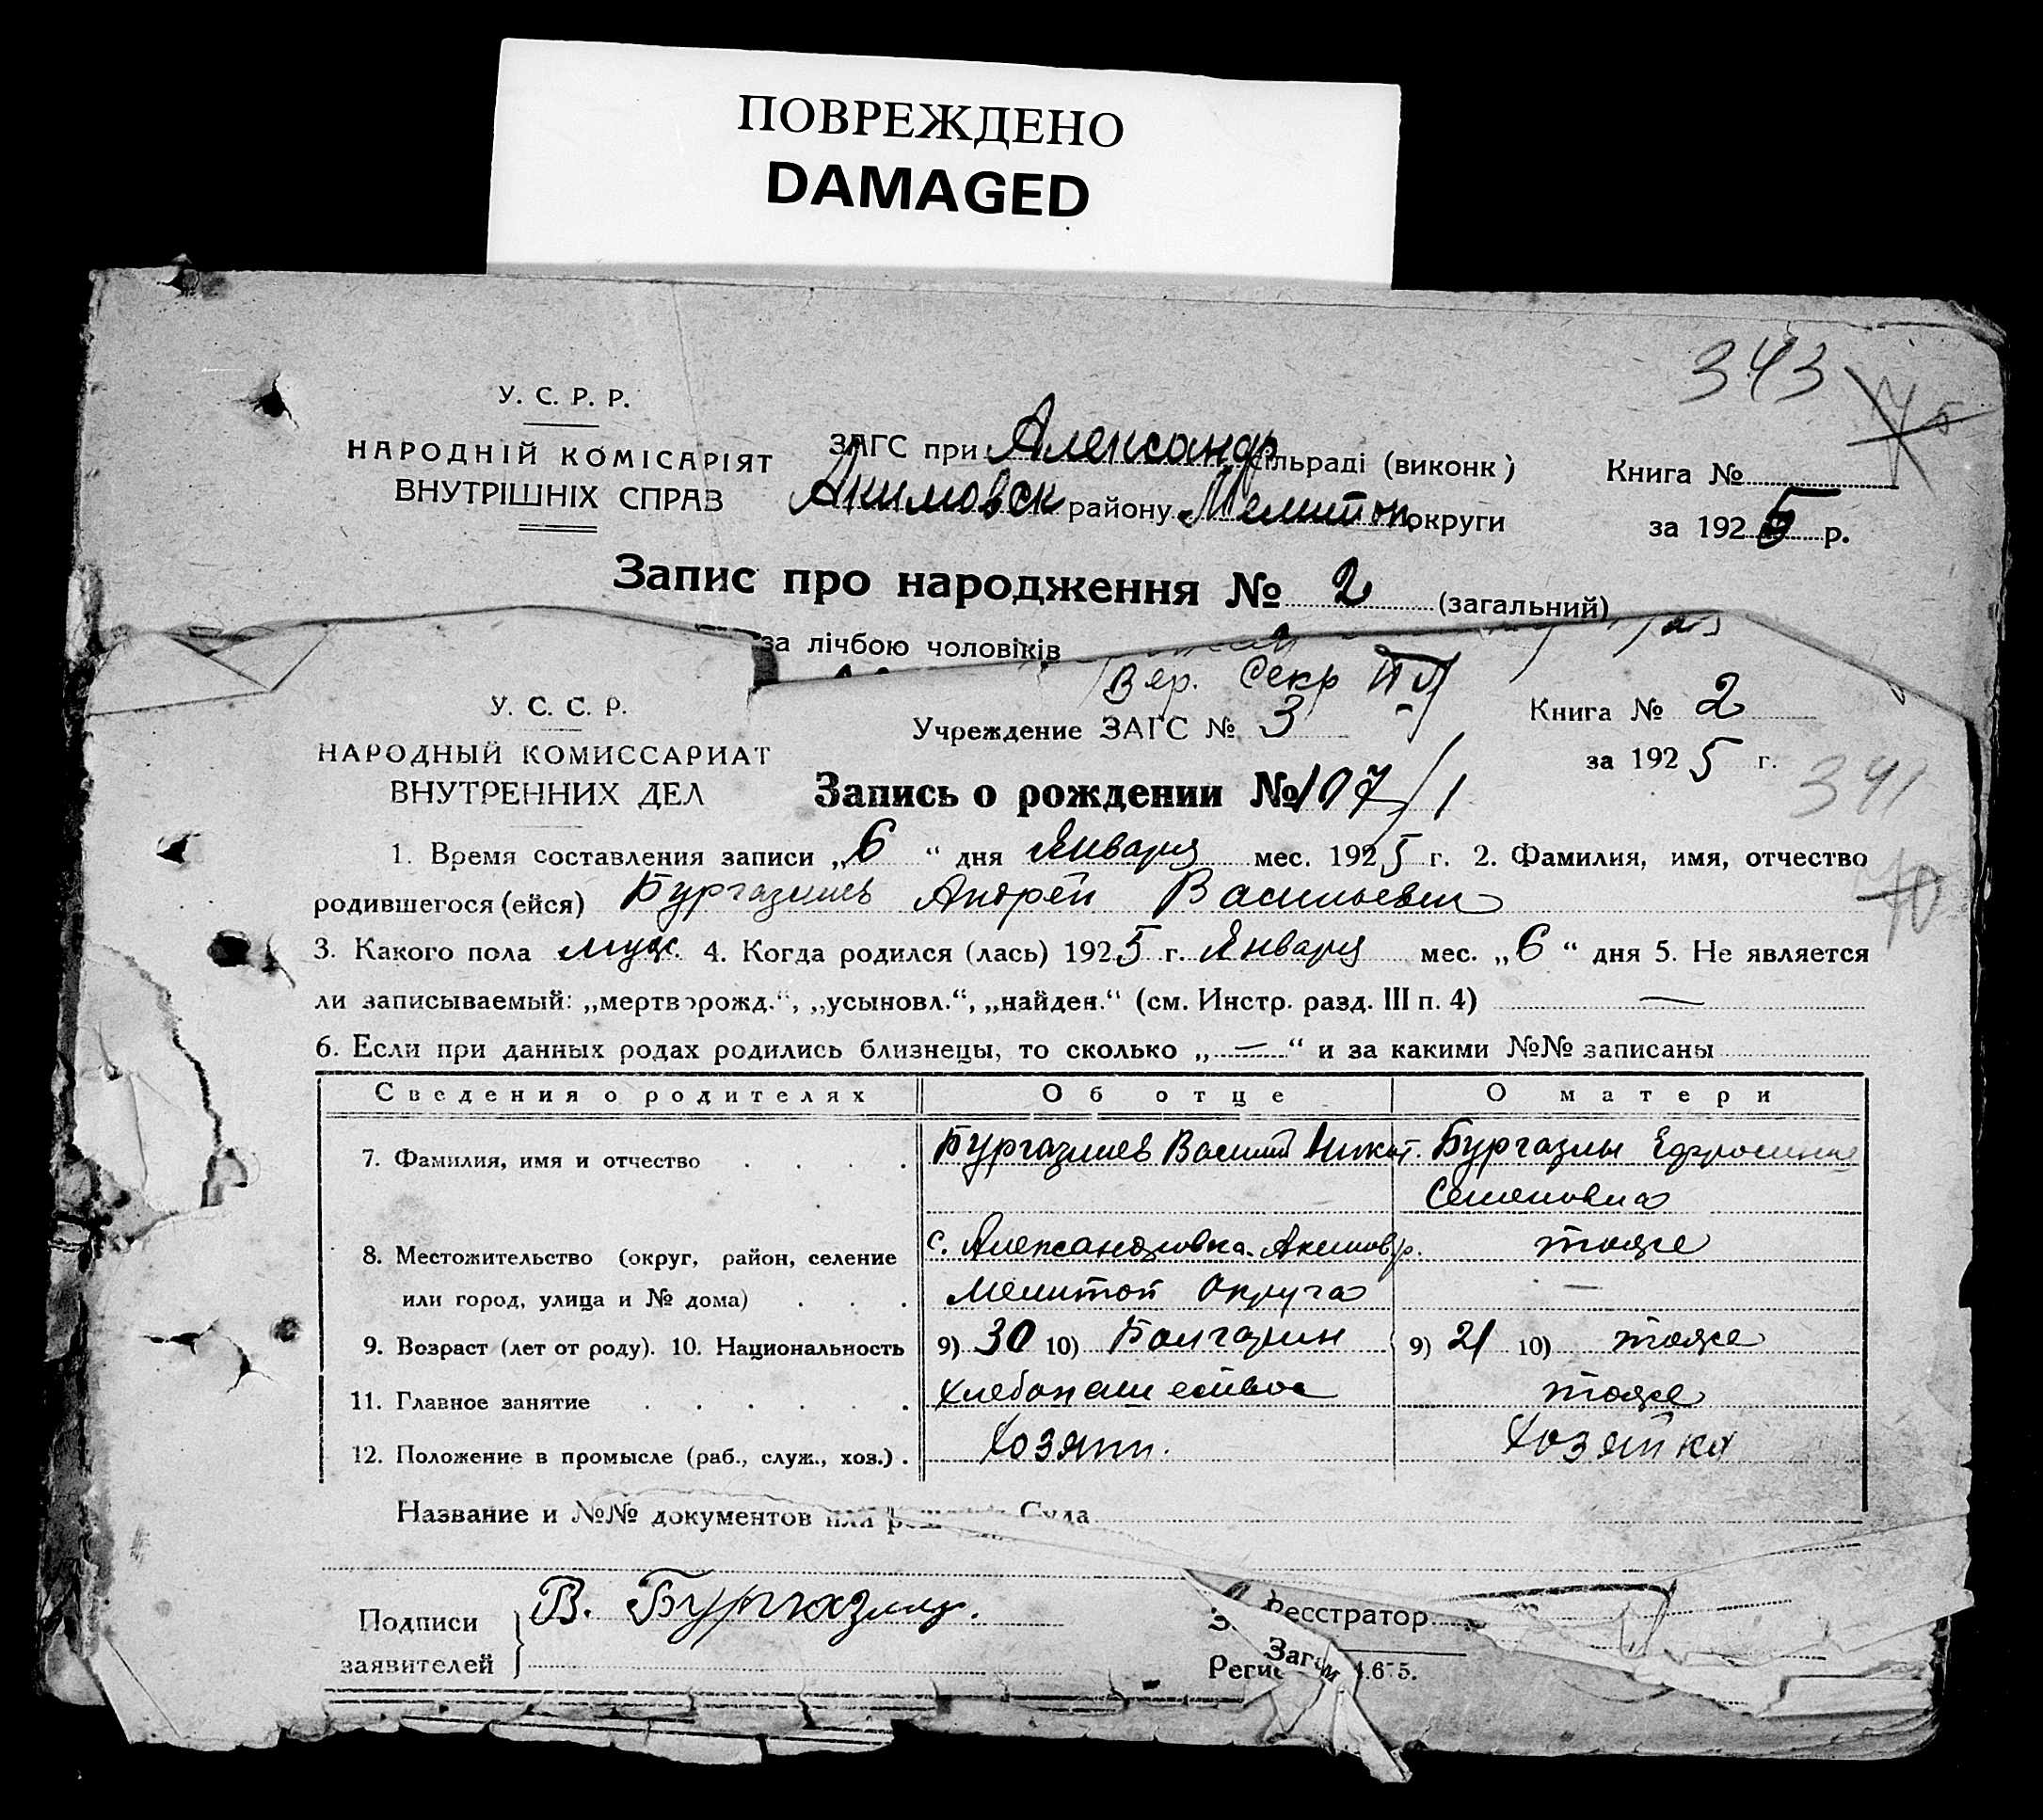 ПОВРЕЖДЕНО
DAMAGED
343
У. С. Р. Р.
НАРОДНІЙ КОМІСАРІЯТ
ВНУТРІШНІХ СПРАВ
ЗАГС при Александр сільраді (виконк)
Акимовск району Мелитоп округи
Книга №
за 1925 р.
Запис про народження № 2 (загальний)
за лічбою чоловіків
Вер. Секр
У. С. С. Р.
НАРОДНЫЙ КОМИССАРИАТ
ВНУТРЕННИХ ДЕЛ
Учреждение ЗАГС № 3
Книга № 2
за 1925 г.
341
Запись о рождении № 107/1
1. Время составления записи „6“ дня Января мес. 1925 г. 2. Фамилия, имя, отчество
70
родившегося (ейся) Бургазлиев Андрей Васильевич
3. Какого пола муж. 4. Когда родился (лась) 1925 г. Января мес. „6“ дня 5. Не является
ли записываемый: „мертворожд.“, „усыновл.“, „найден.“ (см. Инстр. разд. III п. 4) —
6. Если при данных родах родились близнецы, то сколько „—“ и за какими №№ записаны
Сведения о родителях Об отце О матери
7. Фамилия, имя и отчество Бургазлиев Василий Никит. Бургазлы Ефросиния
Семеновна
8. Местожительство (округ, район, селение с. Александровка Акимов. р. тоже
или город, улица и № дома) Мелитоп Округа —
9. Возраст (лет от роду). 10. Национальность 9) 30 10) Болгарин 9) 21 10) тоже
11. Главное занятие Хлебопашество тоже
12. Положение в промысле (раб., служ., хоз.) Хозяин. Хозяйка
Название и №№ документов или Суда
Подписи
заявителей
В. Бургазлы.
Реєстратор